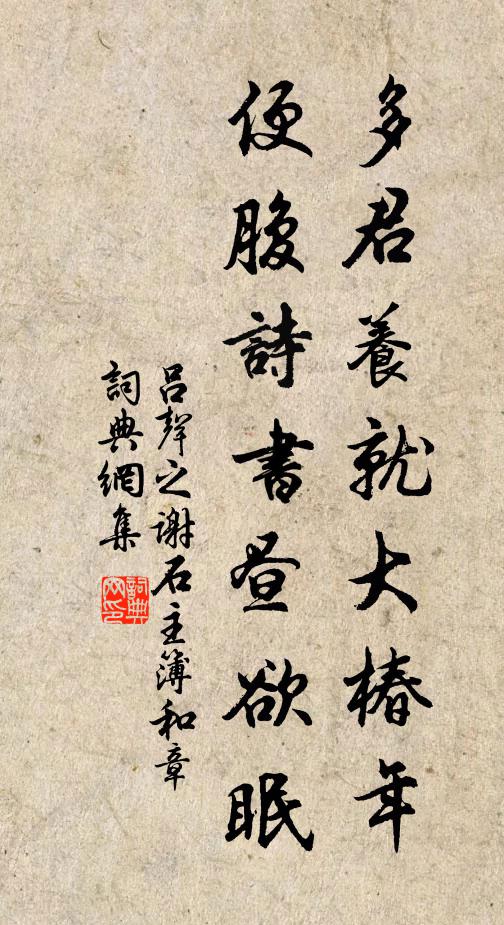 多君養就大椿年
便腹詩書昼欲眠
呂聲之謝石主簿和章
詞典網集
詞典網印